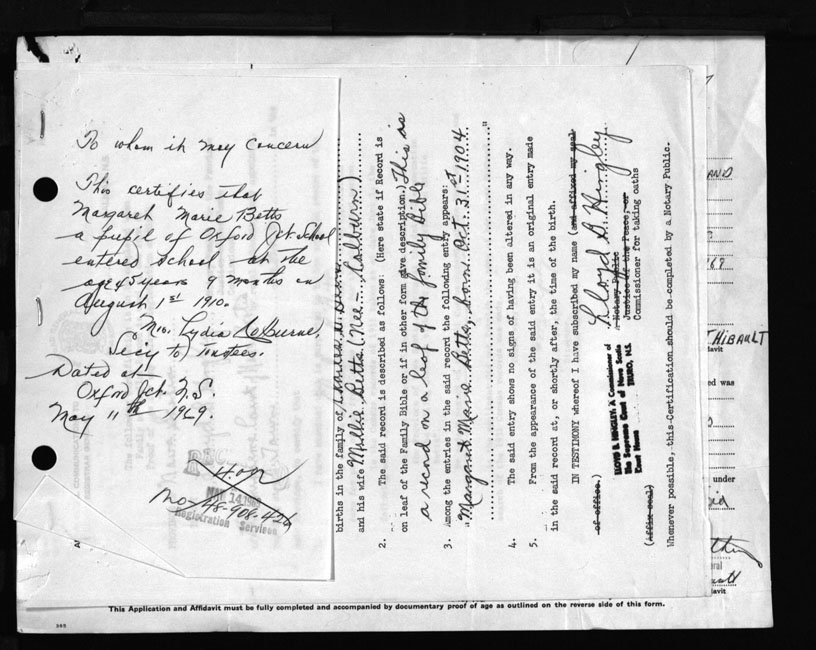 To whom it may concern
This certifies that
Margaret Marie Betts
a pupil of Oxford Jct. School
entered school at the
age 5 years 9 months on
August 1st 1910.
Mrs. Lydia
Sec'y to Trustees.
Dated at
Oxford Jct. N.S.
May 11th 1969.
No-48-908-426
MAY 14 1969
Registration Services
births in the family of
and his wife Millie Betts (Nee - Calhoun)
2. The said record is described as follows: (Here state if Record is
on leaf of the Family Bible or if in other form give description.) This is
a record on a leaf of the family Bible
3. Among the entries in the said record the following entry appears:
"Margaret Marie Betts, born Oct. 31st 1904
"
4. The said entry shows no signs of having been altered in any way.
5. From the appearance of the said entry it is an original entry made
in the said record at, or shortly after, the time of the birth.
IN TESTIMONY whereof I have subscribed my name (and affixed my seal
of office.)
Lloyd B. Hingley
Notary Public
Justice of the Peace, or
Commissioner for taking oaths
LLOYD B. HINGLEY, A Commissioner of
the Supreme Court of Nova Scotia
Court House TRURO, N.S.
(Affix seal)
Whenever possible, this Certification should be completed by a Notary Public.
THIBAULT
davit
ed was
under
davit
This Application and Affidavit must be fully completed and accompanied by documentary proof of age as outlined on the reverse side of this form.